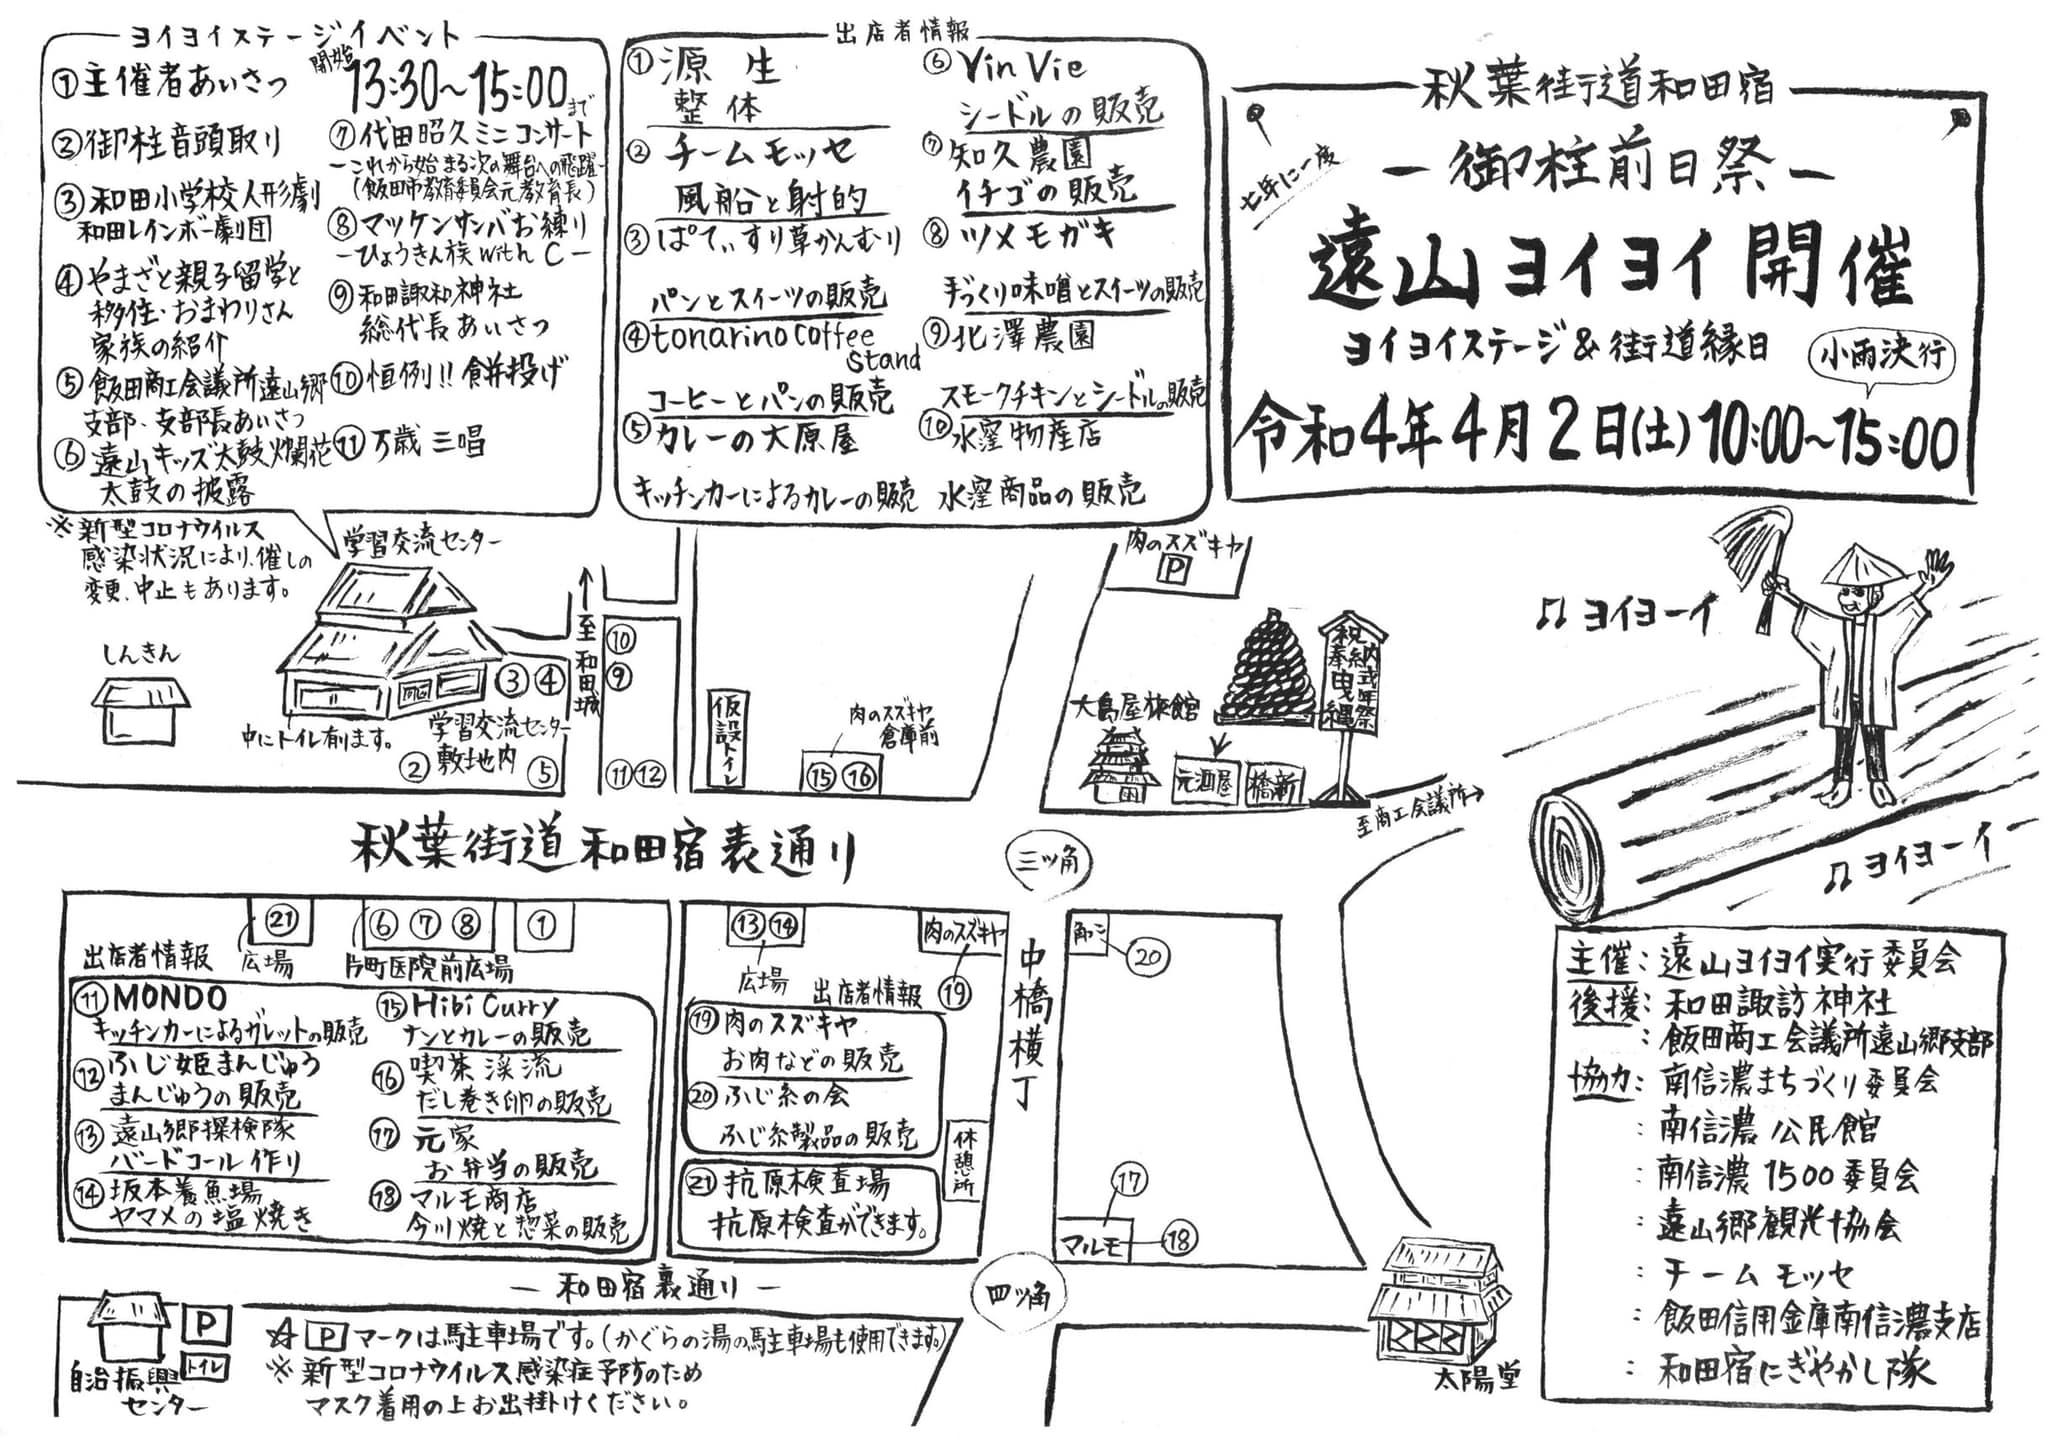 ヨイヨイステージイベント
開始
13:30〜15:00まで
①主催者あいさつ
②御柱音頭取り
③和田小学校人形劇
和田レインボー劇団
④やまざと親子留学と
移住・おまわりさん
家族の紹介
⑤飯田商工会議所遠山郷
支部、支部長あいさつ
⑥遠山キッズ太鼓爛花
太鼓の披露
⑦代田昭久ミニコンサート
ーこれから始まる次の舞台への飛躍ー
(飯田市教育委員会元教育長)
⑧マツケンサンバお練り
ーひょうきん族 with Cー
⑨和田諏訪神社
総代長あいさつ
⑩恒例!!餅投げ
⑪万歳三唱
※新型コロナウイルス
感染状況により、催しの
変更、中止もあります。
出店者情報
①源生
整体
②チームモッセ
風船と射的
③ぱてぃすり草かんむり
パンとスイーツの販売
④tonarino coffee
stand
コーヒーとパンの販売
⑤カレーの大原屋
キッチンカーによるカレーの販売
⑥Vin Vie
シードルの販売
⑦知久農園
イチゴの販売
⑧ツメモガキ
手づくり味噌とスイーツの販売
⑨北澤農園
スモークチキンとシードルの販売
⑩水窪物産店
水窪商品の販売
秋葉街道和田宿
ー御柱前日祭ー
七年に一度
遠山ヨイヨイ開催
ヨイヨイステージ&街道縁日
小雨決行
令和4年4月2日(土)10:00〜15:00
学習交流センター
しんきん
中にトイレ有ります。
③④
学習交流センター
敷地内
②
⑤
↑至和田城
⑩
⑨
⑪⑫
仮設トイレ
肉のスズキヤ
倉庫前
⑮⑯
肉のスズキヤ
P
大島屋旅館
元酒屋
橋新
祝式年祭
奉納曳縄
至商工会議所→
♫ヨイヨーイ
♫ヨイヨーイ
秋葉街道和田宿表通り
三ツ角
㉑
広場
⑥⑦⑧
片町医院前広場
①
⑬⑭
広場
肉のスズキヤ
⑲
角ッコ
⑳
中橋横丁
出店者情報
⑪MONDO
キッチンカーによるガレットの販売
⑫ふじ姫まんじゅう
まんじゅうの販売
⑬遠山郷探検隊
バードコール作り
⑭坂本養魚場
ヤマメの塩焼き
⑮Hibi Curry
ナンとカレーの販売
⑯喫茶渓流
だし巻き卵の販売
⑰元家
お弁当の販売
⑱マルモ商店
今川焼と惣菜の販売
出店者情報
⑲肉のスズキヤ
お肉などの販売
⑳ふじ糸の会
ふじ糸製品の販売
㉑抗原検査場
抗原検査ができます。
休憩所
⑰
マルモ
⑱
ー和田宿裏通りー
四ツ角
太陽堂
自治振興
センター
P
トイレ
☆Pマークは駐車場です。(かぐらの湯の駐車場も使用できます)
※新型コロナウイルス感染症予防のため
マスク着用の上お出掛けください。
主催:遠山ヨイヨイ実行委員会
後援:和田諏訪神社
:飯田商工会議所遠山郷支部
協力:南信濃まちづくり委員会
:南信濃公民館
:南信濃1500委員会
:遠山郷観光協会
:チームモッセ
:飯田信用金庫南信濃支店
:和田宿にぎやかし隊